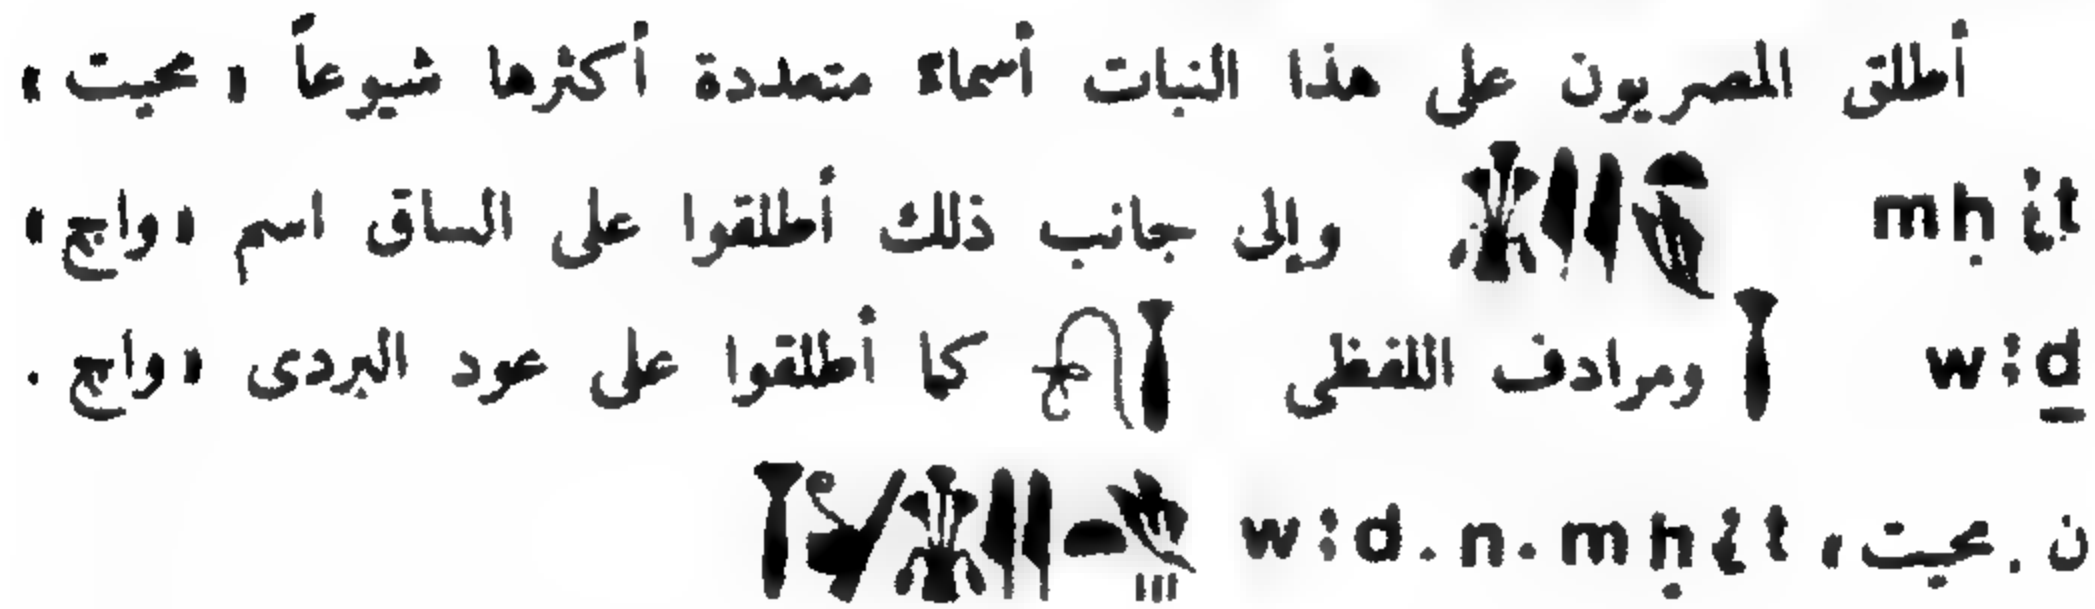 أطلق المصريون على هذا النبات أسماء متعددة أكثرها شيوعاً « محيت »
mḥịt وإلى جانب ذلك أطلقوا على الساق اسم « واج »
wꜣḏ ومرادف اللفظى كما أطلقوا على عود البردى « واج .
ن . محيت » wꜣd.n.mḥịt